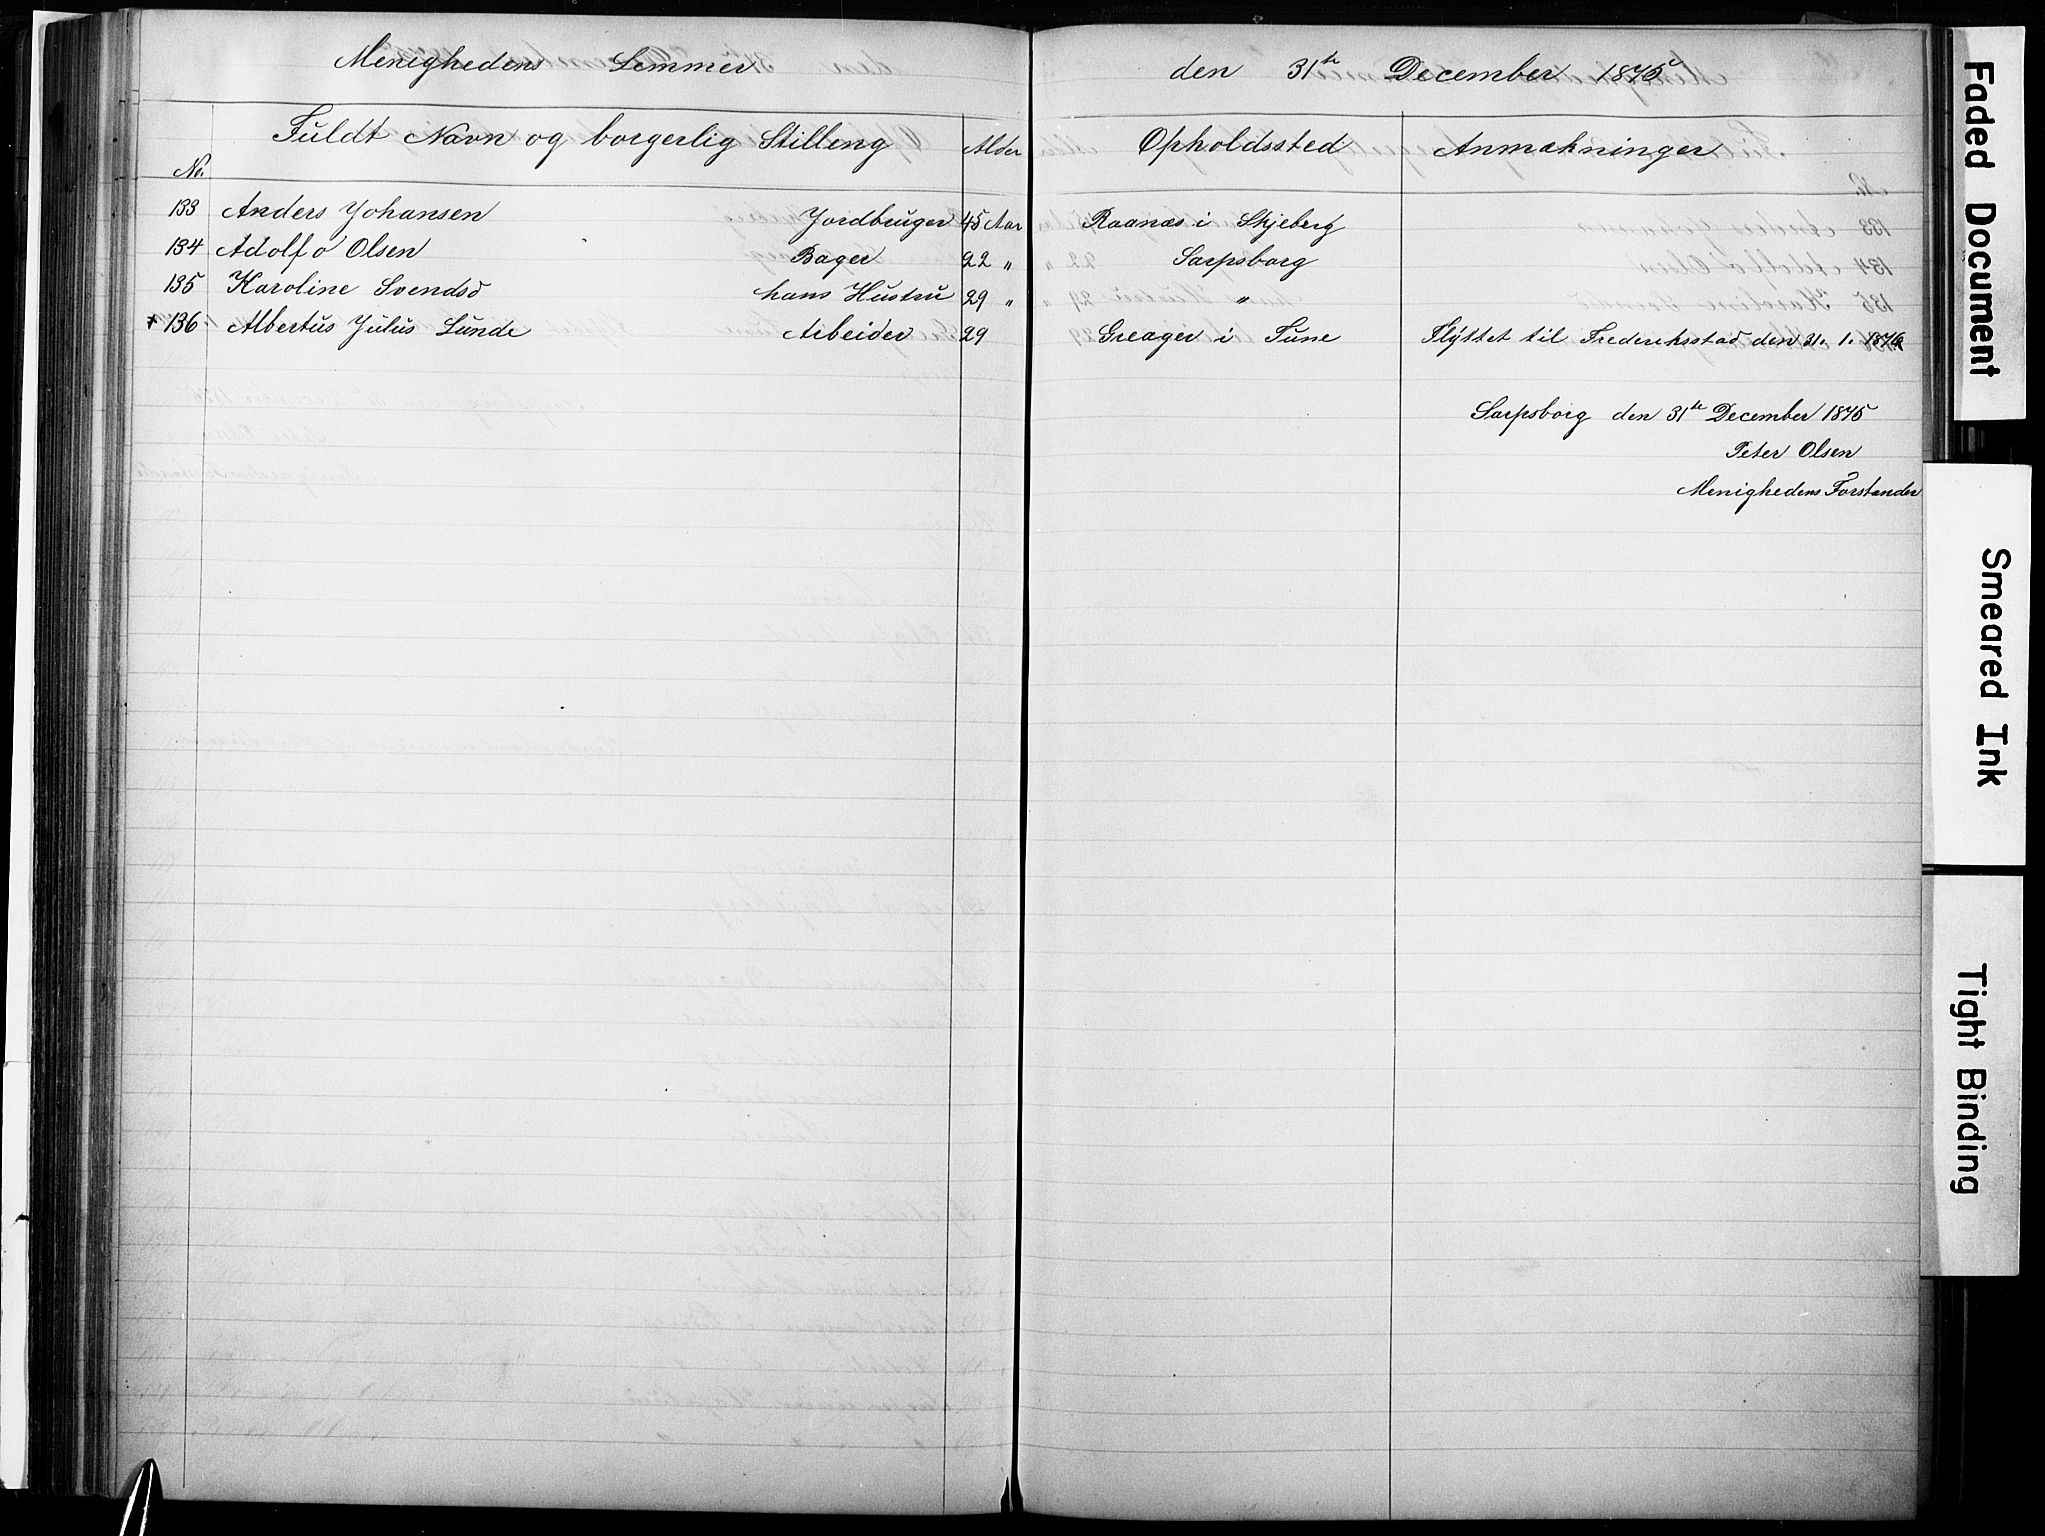 Menighedens Lemmer den 31te December 1875
No. Fuldt Navn og borgerlig Stilleng Alder Opholdssted Anmækninger
133 Anders Johansen Jordbruger 45 Aar Raanæs i Skjeberg
134 Adolf o Olsen Bager 22 " Sarpsborg
135 Karoline Svendsd hans Hustru 29 " "
+ 136 Albertus Julus Lunde Arbeider 29 Greager i Tune Flyttet til Frederiksstad den 31. 1. 1876
Sarpsborg den 31te December 1875
Peter Olsen
Menighedens Forstander
Faded Document
Smeared Ink
Tight Binding